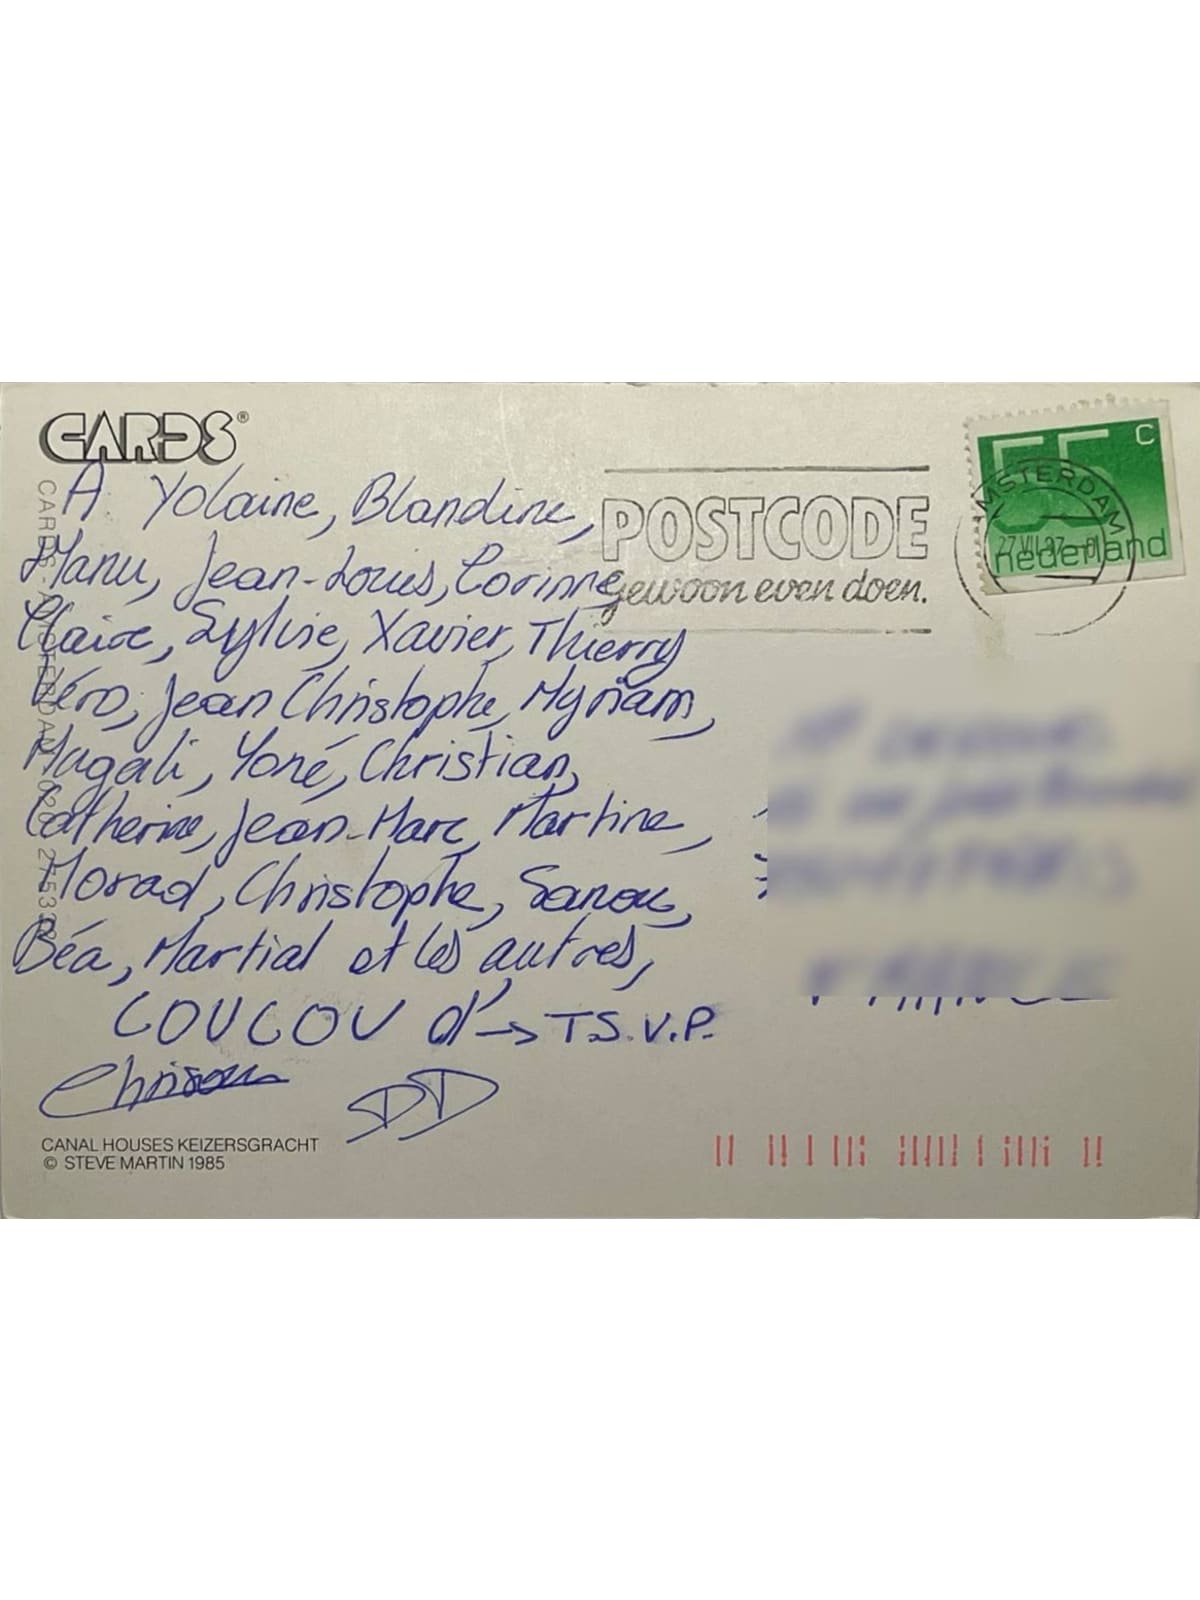 CARDS®
A Yolaine, Blandine,
Manu, Jean-Louis, Corinne
Claire, Sylvie, Xavier, Thierry
Véro, Jean Christophe, Myriam,
Magali, Yoné, Christian,
Catherine, Jean-Marc, Martine,
Morad, Christophe, Sanou,
Béa, Martial et les autres,
COUCOU d'→ T.S.V.P.
DD
CANAL HOUSES KEIZERSGRACHT
© STEVE MARTIN 1985
CARDS. AMSTERDAM
POSTCODE
gewoon even doen.
55 c
nederland
AMSTERDAM
27 VII 87